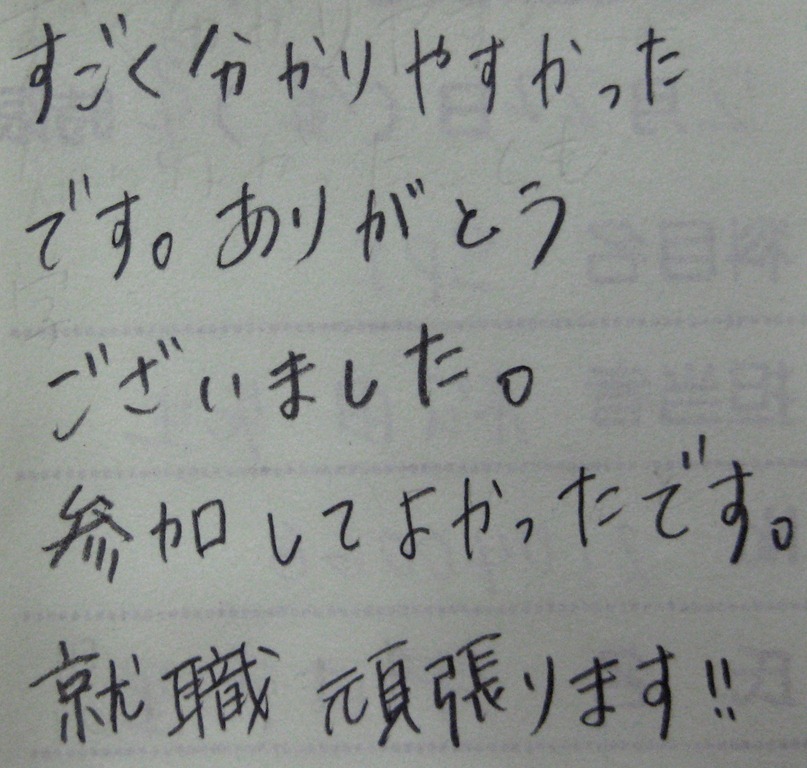 すごく分かりやすかった
です。ありがとう
ございました。
参加してよかったです。
就職頑張ります!!